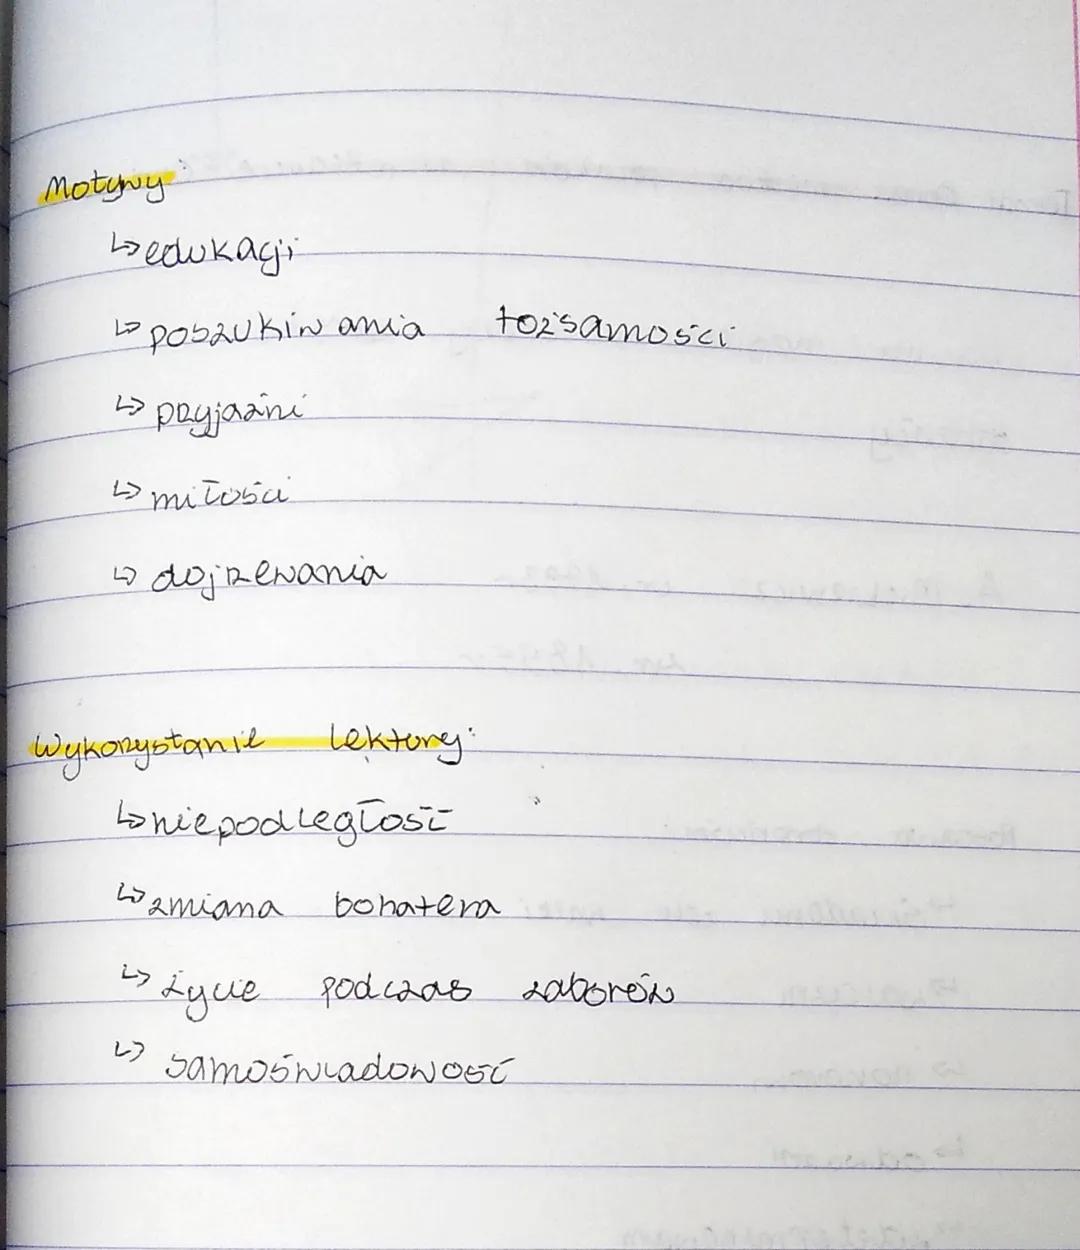 Motywy:
↳ edukacji
↳ poszukiwania tożsamości
↳ przyjaźni
↳ miłości
↳ dojrzewania
Wykorzystanie lektury:
↳ niepodległość
↳ zmiana bohatera
↳ życie podczas zaborów
↳ samoświadowość